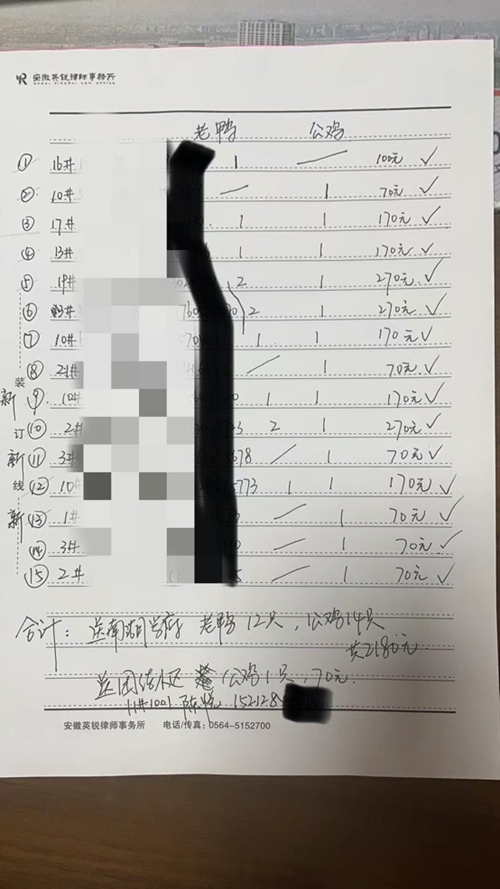 安徽英锐律师事务所
ANHUI YINGRUI LAW OFFICE
老鸭 公鸡
① 16# 1 ／ 100元 ✓
② 10# — 1 70元 ✓
③ 17# 1 1 170元 ✓
④ 13# 1 1 170元 ✓
⑤ 19# 2 1 270元 ✓
⑥ # 2 1 270元 ✓
⑦ 10# 1 1 170元 ✓
⑧ 21# ／ 1 70元 ✓
新 ⑨ 10# 1 1 170元 ✓
⑩ 2# 2 1 270元 ✓
新 ⑪ 3# 678 ／ 1 70元 ✓
⑫ 10# 773 1 1 170元 ✓
新 ⑬ 1# ／ 1 70元 ✓
⑭ 3# ／ 1 70元 ✓
⑮ 2# ／ 1 70元 ✓
装
订
线
合计: 送南湖 老鸭12只, 公鸡14只
共2180元
公鸡1只, 70元.
11#1001 陈 152128
安徽英锐律师事务所 电话/传真: 0564-5152700